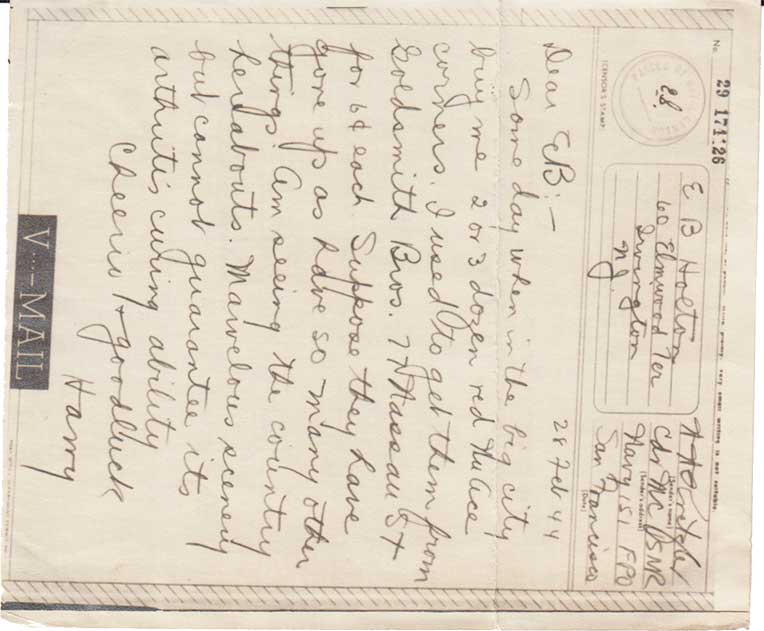 No.
29 174:26
E B Holton
60 Elmwood Ter
Irvington
NJ
(Sender's name)
Cdr MC USNR
(Sender's address)
Navy 151 FPO
San Francisco
(Date)
28 Feb 44
(CENSOR'S STAMP)
Dear EB:—
Some day when in the big city
buy me 2 or 3 dozen red NuAce
corners. I used to get them from
Goldsmith Bros. 77 Nassau St
for 6¢ each. Suppose they have
gone up as have so many other
things. Am seeing the country
hereabouts. Marvelous scenery
but cannot guarantee its
arthritis curing ability
Cheerio & good luck
Harry
V···—MAIL